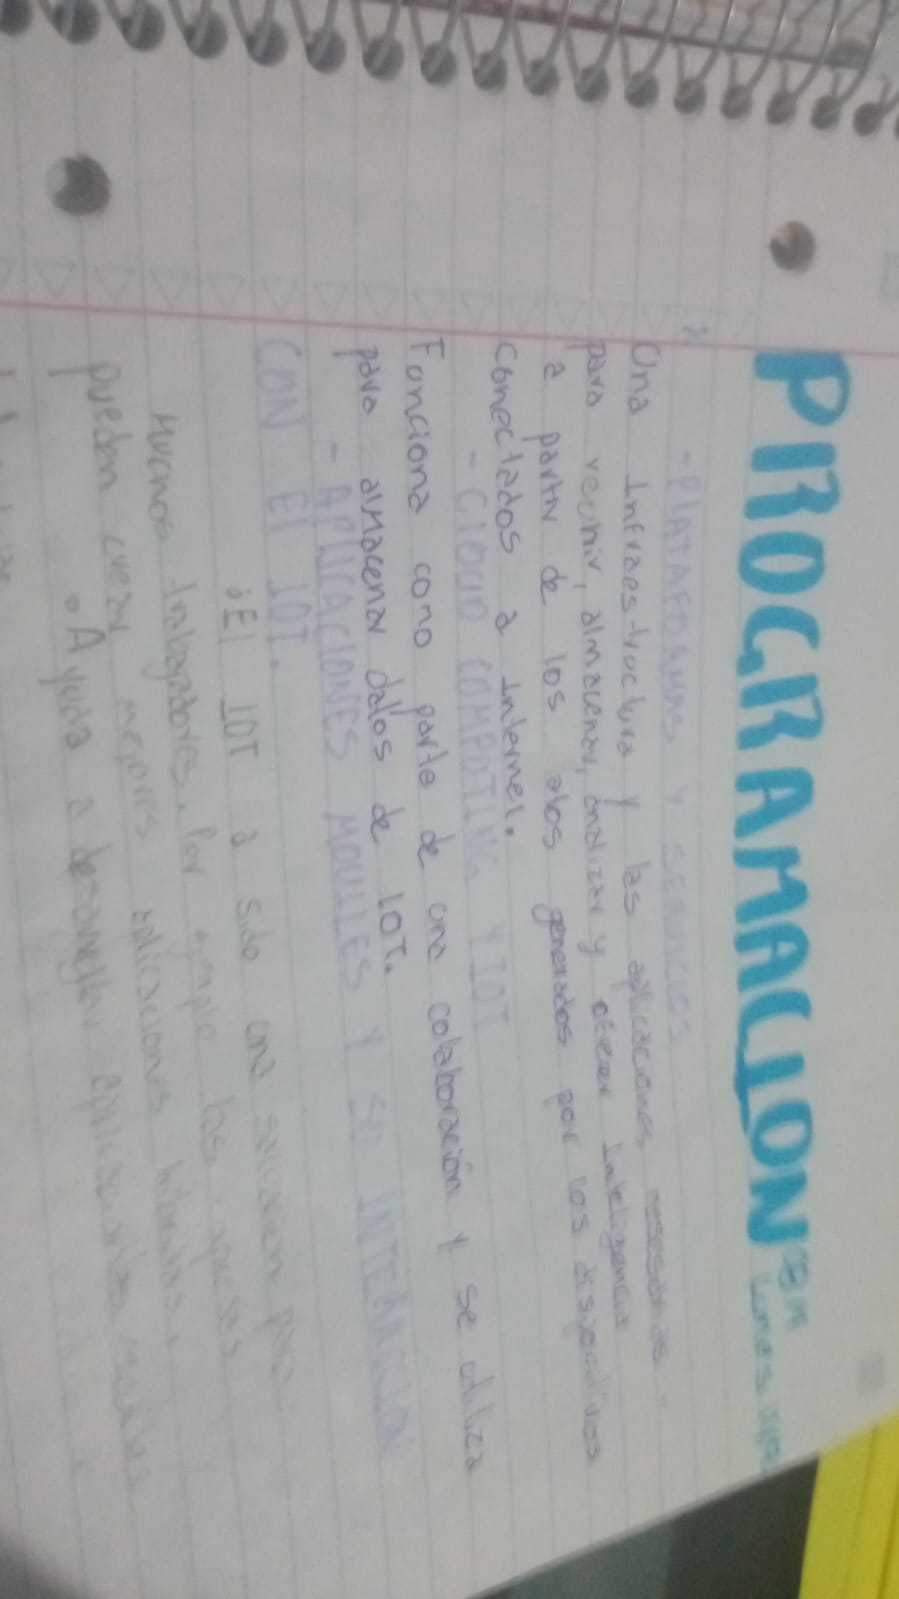 PROGRAMACION
Lunes
-PLATAFORMAS Y SERVICIOS
Una Infraestructura y las aplicaciones necesarias
para recibir, almacenar, analizar y ofrecer Inteligencia
a partir de los atos generados por los dispositivos
conectados a Internet.
- CLOUD COMPUTING Y IOT
Funciona como parte de una colaboración y se utiliza
para almacenar datos de IOT.
- APLICACIONES MOVILES Y SU INTERACCION
CON El IOT.
El IOT a sido una solucion para
muchos trabajadores. Por ejemplo las
pueden crear mejores aplicaciones
• Ayuda a desarrollar aplicaciones